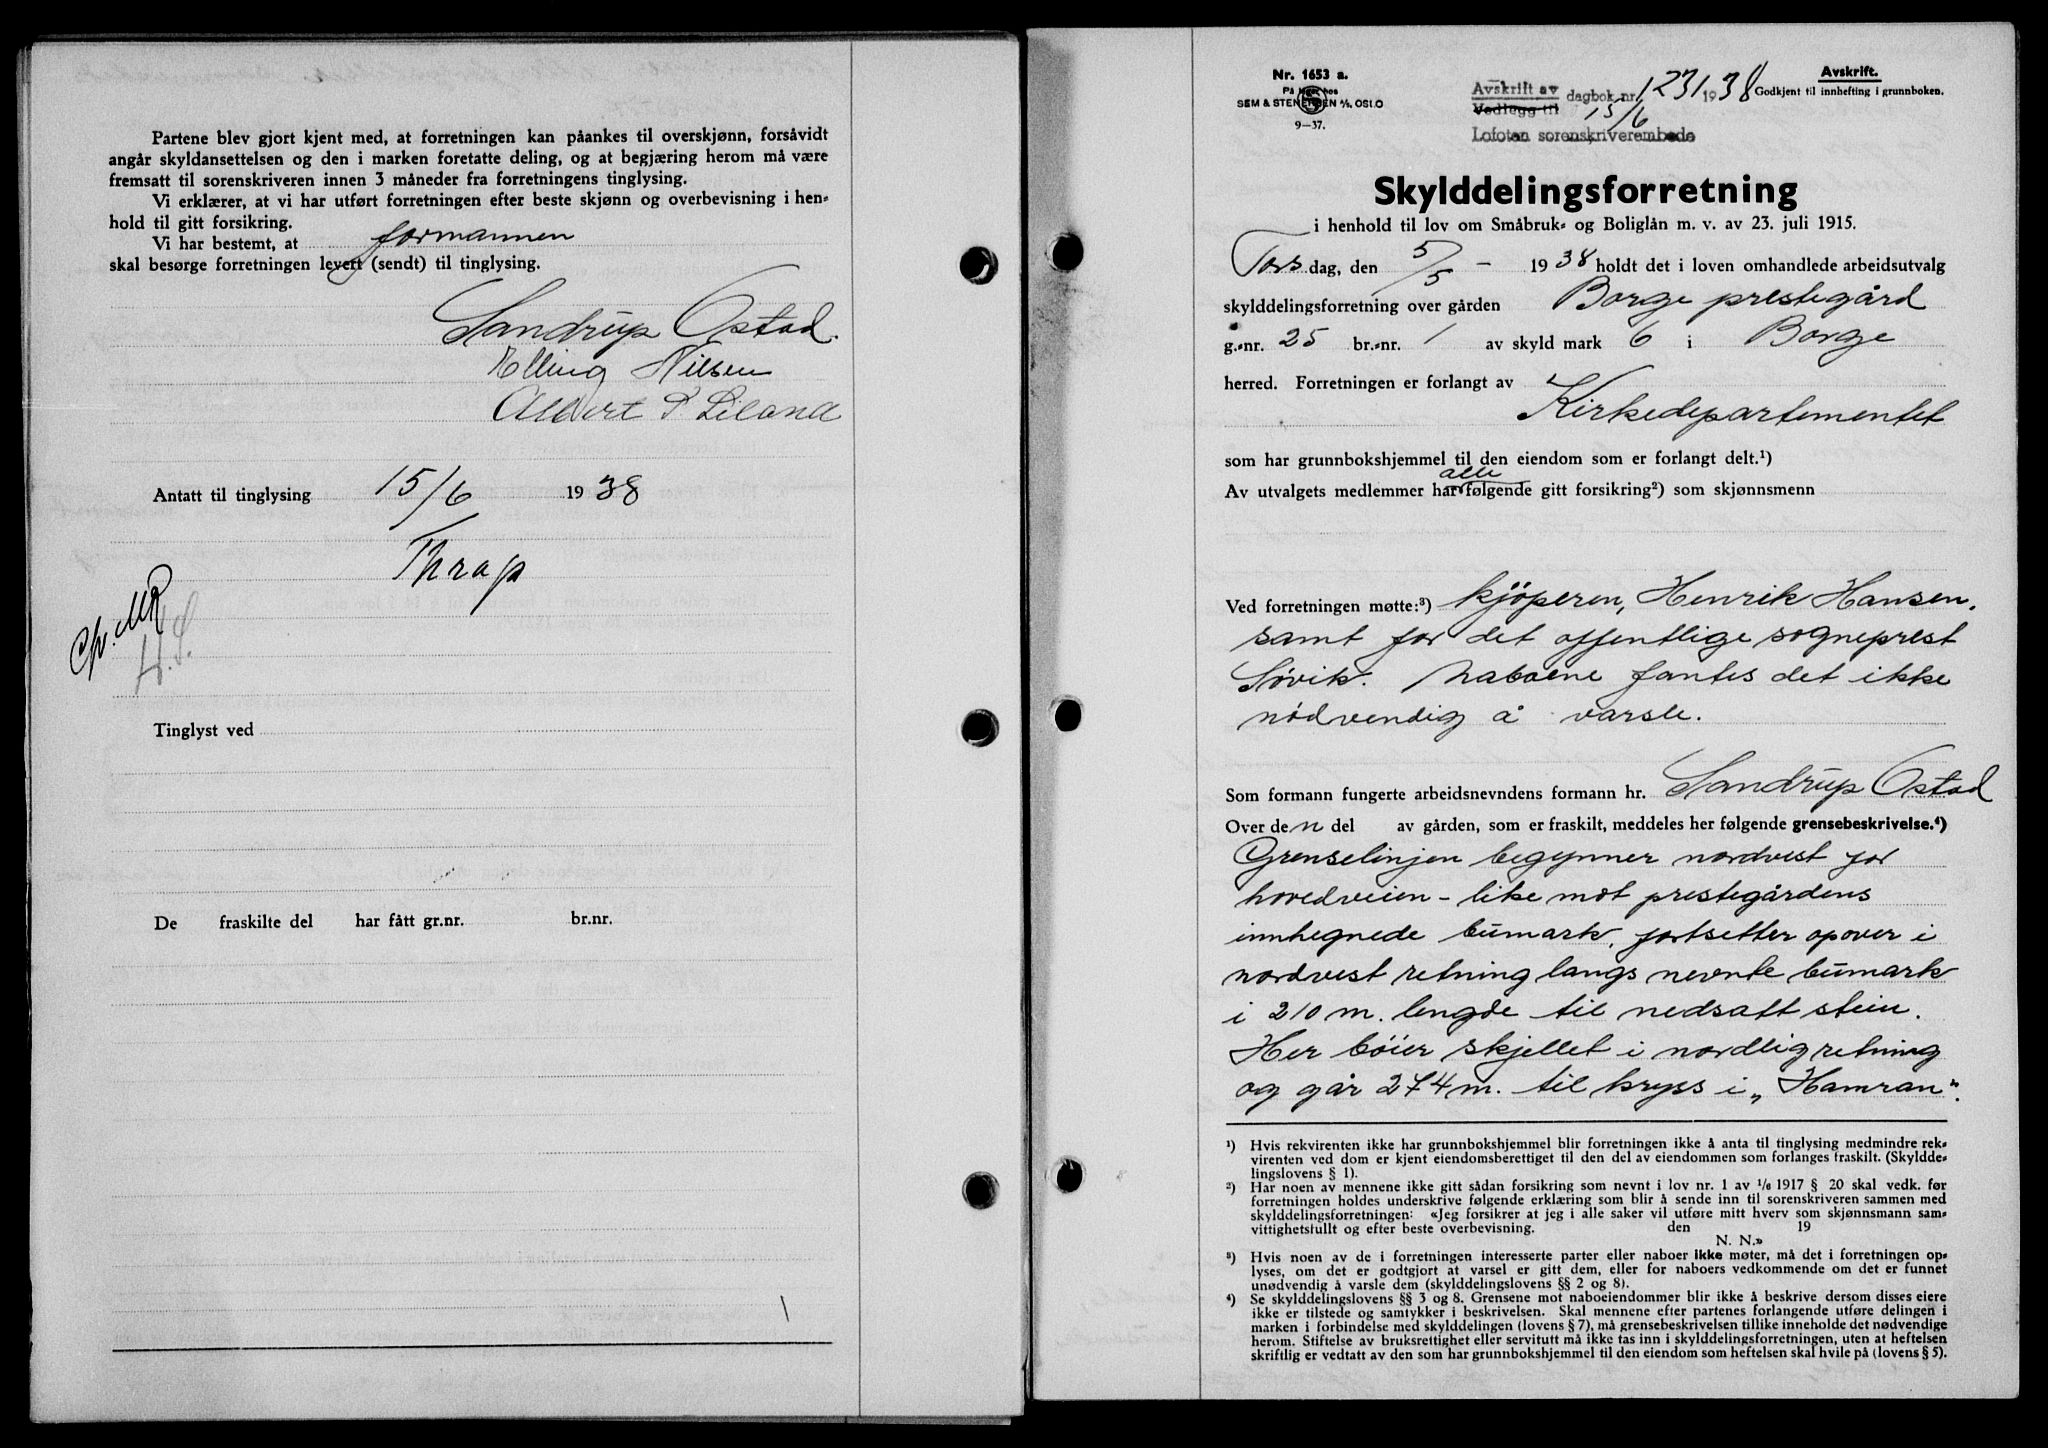 Partene blev gjort kjent med, at forretningen kan påankes til overskjønn, forsåvidt
angår skyldansettelsen og den i marken foretatte deling, og at begjæring herom må være
fremsatt til sorenskriveren innen 3 måneder fra forretningens tinglysing.
Vi erklærer, at vi har utført forretningen efter beste skjønn og overbevisning i hen-
hold til gitt forsikring.
Vi har bestemt, at formannen
skal besørge forretningen levert (sendt) til tinglysing.
Sandrup Ostad.
Elling Nilsen
Albert P. Liland
Antatt til tinglysing 15/6 1938
Thrap
Tinglyst ved
De fraskilte del har fått gr.nr. br.nr.
Nr. 1653 a.
På lager hos
SEM & STENERSEN A/S, OSLO
9—37.
Avskrift av
Vedlegg til dagbok nr. 1231 1938
15/6
Lofoten sorenskriverembede
Avskrift.
Godkjent til innhefting i grunnboken.
Skylddelingsforretning
i henhold til lov om Småbruk- og Boliglån m. v. av 23. juli 1915.
Torsdag, den 5/5 - 1938 holdt det i loven omhandlede arbeidsutvalg
skylddelingsforretning over gården Borge prestegård
g.-nr. 25 br.-nr. 1 av skyld mark 6 i Borge
herred. Forretningen er forlangt av Kirkedepartementet
som har grunnbokshjemmel til den eiendom som er forlangt delt.¹)
alle
Av utvalgets medlemmer har følgende gitt forsikring²) som skjønnsmenn
Ved forretningen møtte:³) kjøperen, Henrik Hansen,
samt for det offentlige sogneprest
Søvik. Naboene fantes det ikke
nødvendig å varsle.
Som formann fungerte arbeidsnevndens formann hr. Sandrup Ostad
Over den del av gården, som er fraskilt, meddeles her følgende grensebeskrivelse.⁴)
Grenselinjen begynner nordvest for
hovedveien - like mot prestegårdens
innhegnede bumark, fortsetter opover i
nordvest retning langs nevnte bumark
i 210 m. lengde til nedsatt stein.
Her bøier skjellet i nordlig retning
og går 274 m. til kryss i „Hamran".
¹) Hvis rekvirenten ikke har grunnbokshjemmel blir forretningen ikke å anta til tinglysing medmindre rek-
virenten ved dom er kjent eiendomsberettiget til den del av eiendommen som forlanges fraskilt. (Skyldde-
lingslovens § 1).
²) Har noen av mennene ikke gitt sådan forsikring som nevnt i lov nr. 1 av 1/6 1917 § 20 skal vedk. før
forretningen holdes underskrive følgende erklæring som blir å sende inn til sorenskriveren sammen med
skylddelingsforretningen: «Jeg forsikrer at jeg i alle saker vil utføre mitt hverv som skjønnsmann sam-
vittighetsfullt og efter beste overbevisning. den 19
N. N.»
³) Hvis noen av de i forretningen interesserte parter eller naboer ikke møter, må det i forretningen op-
lyses, om det er godtgjort at varsel er gitt dem, eller for naboers vedkommende om det er funnet
unødvendig å varsle dem (skylddelingslovens §§ 2 og 8).
⁴) Se skylddelingslovens §§ 3 og 8. Grensene mot naboeiendommer blir ikke å beskrive dersom disses eiere
ikke er tilstede og samtykker i beskrivelsen. Skal mennene efter partenes forlangende utføre delingen i
marken i forbindelse med skylddelingen (lovens § 7), må grensebeskrivelsen tillike inneholde det nødvendige
herom. Stiftelse av bruksrettighet eller servitutt må ikke tas inn i skylddelingsforretningen, uten at heftelsen
skriftlig er vedtatt av den som har grunnbokshjemmel til den eiendom som heftelsen skal hvile på (lovens § 5).